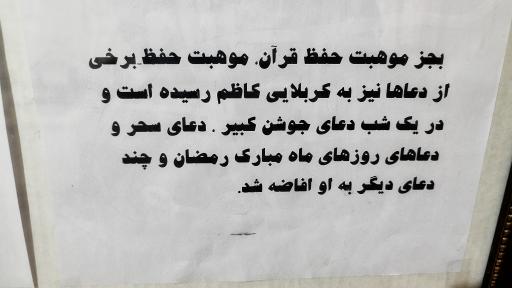 بجز موهبت حفظ قرآن، موهبت حفظ برخی
از دعاها نیز به کربلایی کاظم رسیده است و
در یک شب دعای جوشن کبیر ، دعای سحر و
دعاهای روزهای ماه مبارک رمضان و چند
دعای دیگر به او افاضه شد.